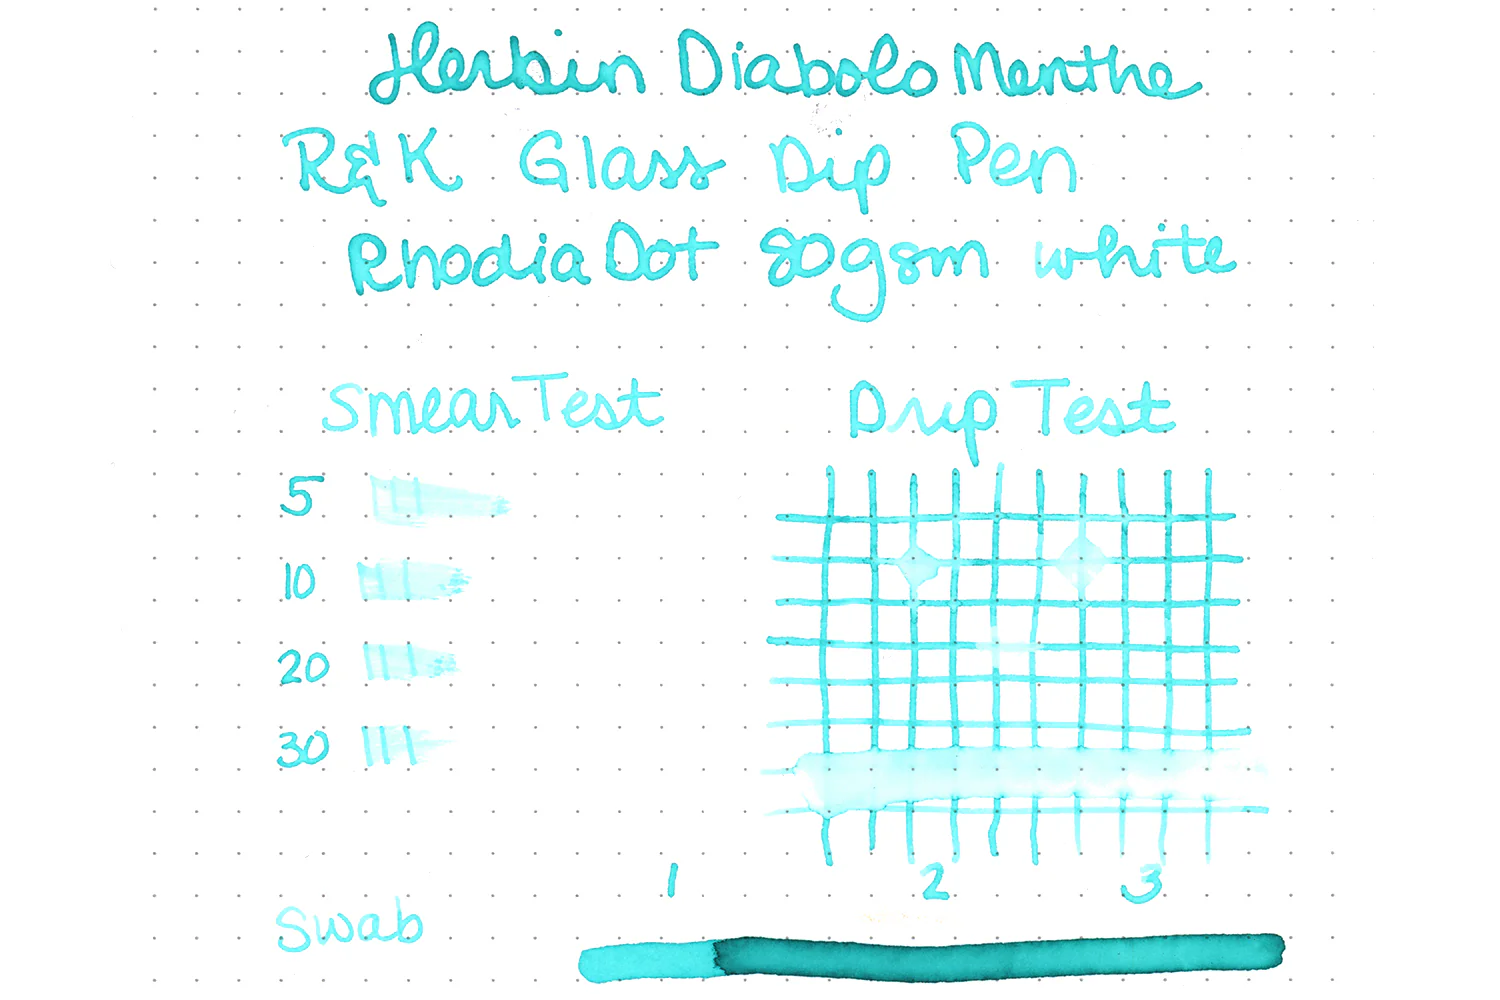 Herbin Diabolo Menthe
R&K Glass Dip Pen
Rhodia Dot 80gsm white
Smear Test Drip Test
5
10
20
30
1 2 3
Swab